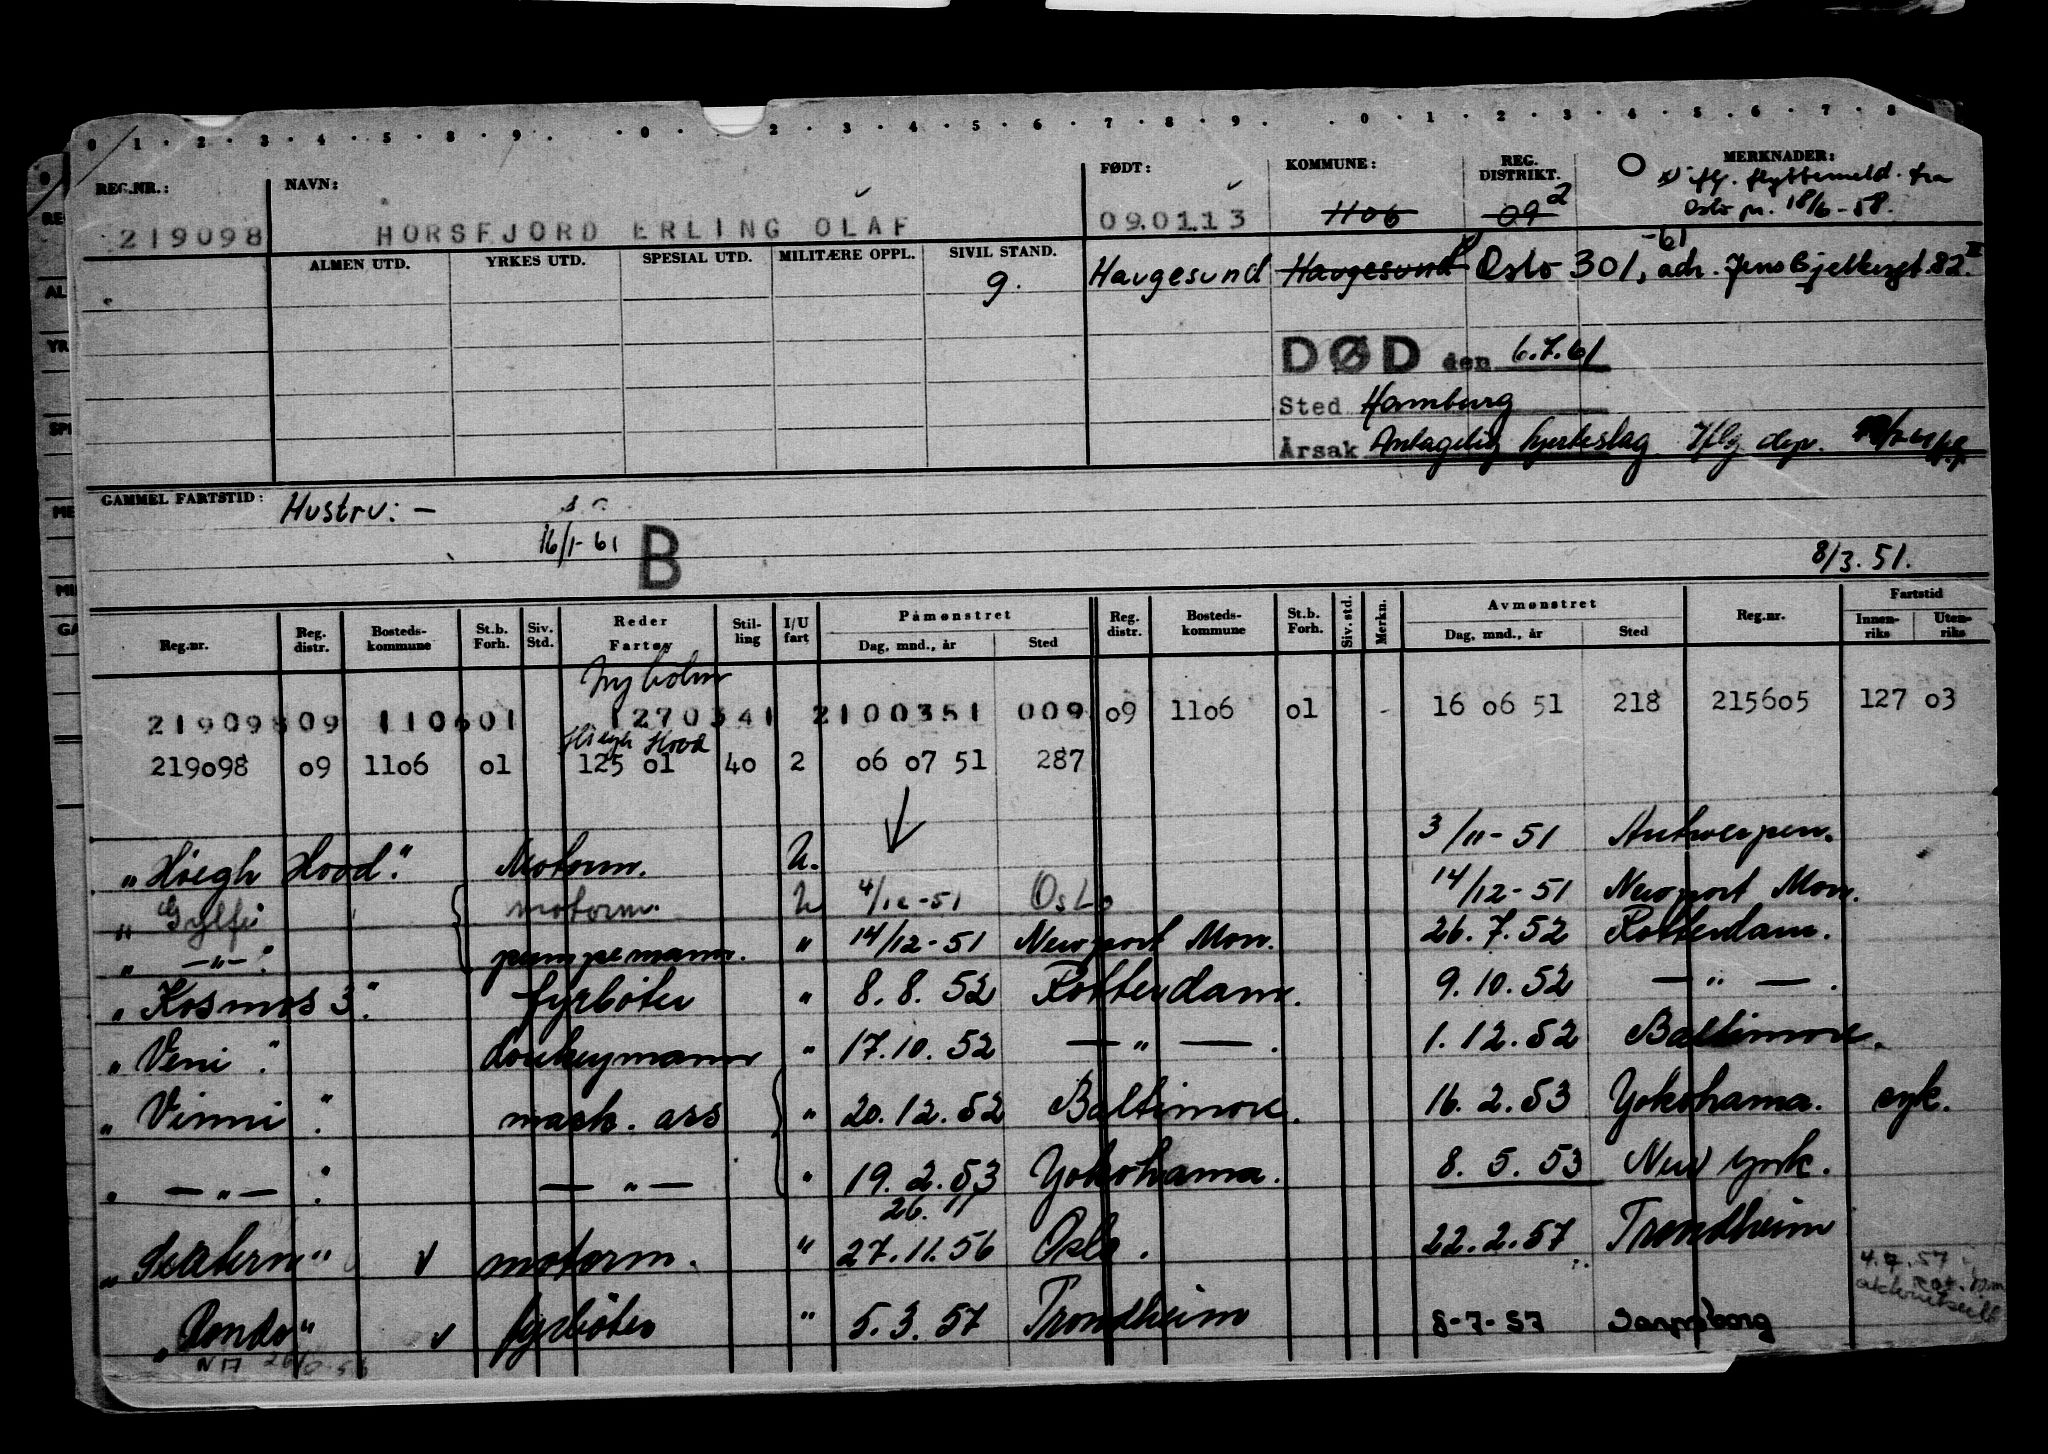 0 · 1 · 2 · 3 · 4 · 5 · 8 · 9 · 0 · 2 · 3 · 4 · 5 · 6 · 7 · 8 · 9 · 0 · 1 · 2 · 3 · 4 · 5 · 6 · 7 · 8
REG.NR.: NAVN: FØDT: KOMMUNE: REG. DISTRIKT. MERKNADER:
x) ifl. flyttemeld. fra
Oslo pr. 18/6-58.
219098 HORSFJORD ERLING OLAF 09.01.13 1106 09 2
ALMEN UTD. YRKES UTD. SPESIAL UTD. MILITÆRE OPPL. SIVIL STAND.
9. Haugesund Haugesund x) Oslo 301, -61 adr. Jens Bjelkesgt. 82 II
DØD den 6.7.61
Sted Hamburg
Årsak Antagelig hjerteslag Iflg dep.
GAMMEL FARTSTID: Hustru: -
16/1-61 B
8/3.51.
Reg.nr. Reg. distr. Bosteds-kommune St.b. Forh. Siv. Std. Reder Fartøy Stil-ling I/U fart Påmønstret Dag, mnd., år Sted Reg. distr. Bosteds-kommune St.b. Forh. Siv. std. Merkn. Avmønstret Dag, mnd., år Sted Reg.nr. Fartstid Innen-riks Uten-riks
Nyholm
219098 09 1106 01 1270341 2100351 009 09 1106 01 - 16 06 51 218 215605 127 03
Höegh Hood
219098 09 1106 01 125 01 40 2 06 07 51 287
"Höegh Hood". Motorm. U. 3/11-51 Antwerpen.
" Gylfe motorm. U 4/12-51 Oslo 14/12-51 Newport Mon.
" -"- . pumpemann. " 14/12-51 Newport Mon. 26.7.52 Rotterdam.
"Kosmos 3". fyrbøter " 8.8.52 Rotterdam. 9.10.52 -"- .
"Veni". donkeymann " 17.10.52 -"- . 1.12.52 Baltimore.
"Vinni". mask. ass " 20.12.52 Baltimore. 16.2.53 Yokohama. syk.
" -"- . -"- " 19.2.53 Yokohama. 8.5.53 New York.
26.11
"Seatern" v motorm. " 27.11.56 Oslo. 22.2.57 Trondheim
"Rondo" v fyrbøter " 5.3.57 Trondheim 8-7-57 Sarpsborg